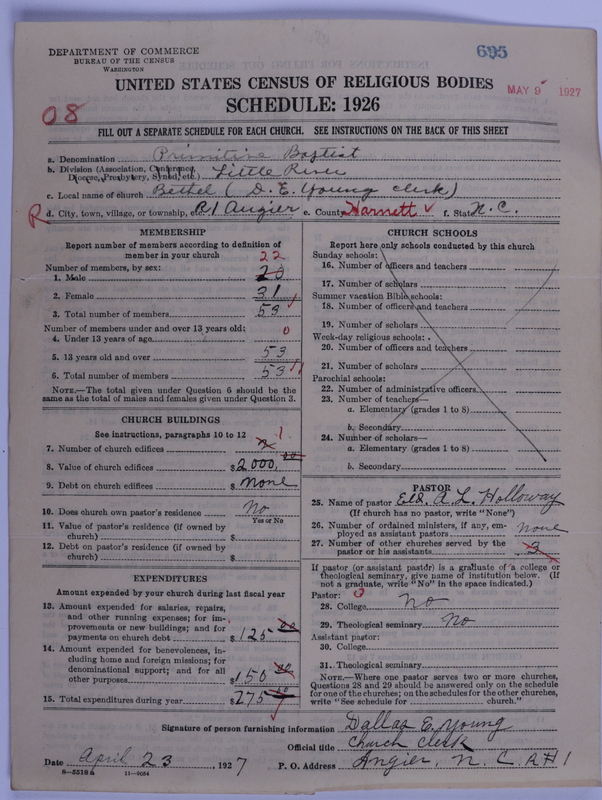 DEPARTMENT OF COMMERCE
BUREAU OF THE CENSUS
WASHINGTON
695
UNITED STATES CENSUS OF RELIGIOUS BODIES
MAY 9 1927
SCHEDULE: 1926
08
FILL OUT A SEPARATE SCHEDULE FOR EACH CHURCH. SEE INSTRUCTIONS ON THE BACK OF THIS SHEET
a. Denomination Primitive Baptist
b. Division (Association, Conference, Diocese, Presbytery, Synod, etc.) Little River
c. Local name of church Bethel (D. E. Young clerk)
R d. City, town, village, or township, etc. R1 Angier e. County Harnett f. State N.C.
MEMBERSHIP
Report number of members according to definition of
member in your church
22
Number of members, by sex:
1. Male 20
2. Female 31
3. Total number of members 53
Number of members under and over 13 years old: 0
4. Under 13 years of age
5. 13 years old and over 53
6. Total number of members 53
NOTE.—The total given under Question 6 should be the
same as the total of males and females given under Question 3.
CHURCH BUILDINGS
See instructions, paragraphs 10 to 12
1
7. Number of church edifices
8. Value of church edifices $ 2000.00
9. Debt on church edifices $ none
10. Does church own pastor's residence No
Yes or No
11. Value of pastor's residence (if owned by
church) $
12. Debt on pastor's residence (if owned by
church) $
EXPENDITURES
Amount expended by your church during last fiscal year
13. Amount expended for salaries, repairs,
and other running expenses; for im-
provements or new buildings; and for
payments on church debt $ 125 00
14. Amount expended for benevolences, in-
cluding home and foreign missions; for
denominational support; and for all
other purposes $ 150 00
15. Total expenditures during year $ 275 00
CHURCH SCHOOLS
Report here only schools conducted by this church
Sunday schools:
16. Number of officers and teachers
17. Number of scholars
Summer vacation Bible schools:
18. Number of officers and teachers
19. Number of scholars
Week-day religious schools:
20. Number of officers and teachers
21. Number of scholars
Parochial schools:
22. Number of administrative officers
23. Number of teachers—
a. Elementary (grades 1 to 8)
b. Secondary
24. Number of scholars—
a. Elementary (grades 1 to 8)
b. Secondary
PASTOR
25. Name of pastor Eld. A. L. Holloway
(If church has no pastor, write "None")
26. Number of ordained ministers, if any, em-
ployed as assistant pastors none
27. Number of other churches served by the
pastor or his assistants 3
If pastor (or assistant pastor) is a graduate of a college or
theological seminary, give name of institution below. (If
not a graduate, write "No" in the space indicated.)
Pastor:
28. College No
29. Theological seminary No
Assistant pastor:
30. College
31. Theological seminary
NOTE.—Where one pastor serves two or more churches,
Questions 28 and 29 should be answered only on the schedule
for one of the churches; on the schedules for the other churches,
write "See schedule for church."
Signature of person furnishing information Dallas E. Young
Official title Church Clerk
Date April 23, 1927 P. O. Address Angier, N. C. R#1
8—5518a 11—9084